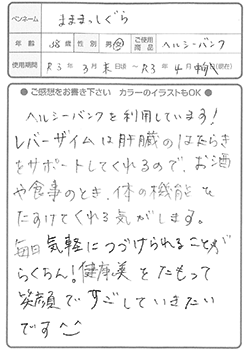 ペンネーム まままっしぐら
年齢 38歳 性別 男・女 ご使用商品 ヘルシーバンク
使用期間 R3年3月末日頃〜R3年4月中旬(現在)
● ご感想をお書き下さい カラーのイラストもOK ●
ヘルシーバンクを利用しています!
レバーザイムは肝臓のはたらき
をサポートしてくれるので、お酒
や食事のとき、体の機能を
たすけてくれる気がします。
毎日気軽につづけられることが
らくちん!健康美をたもって
笑顔ですごしていきたい
です^^